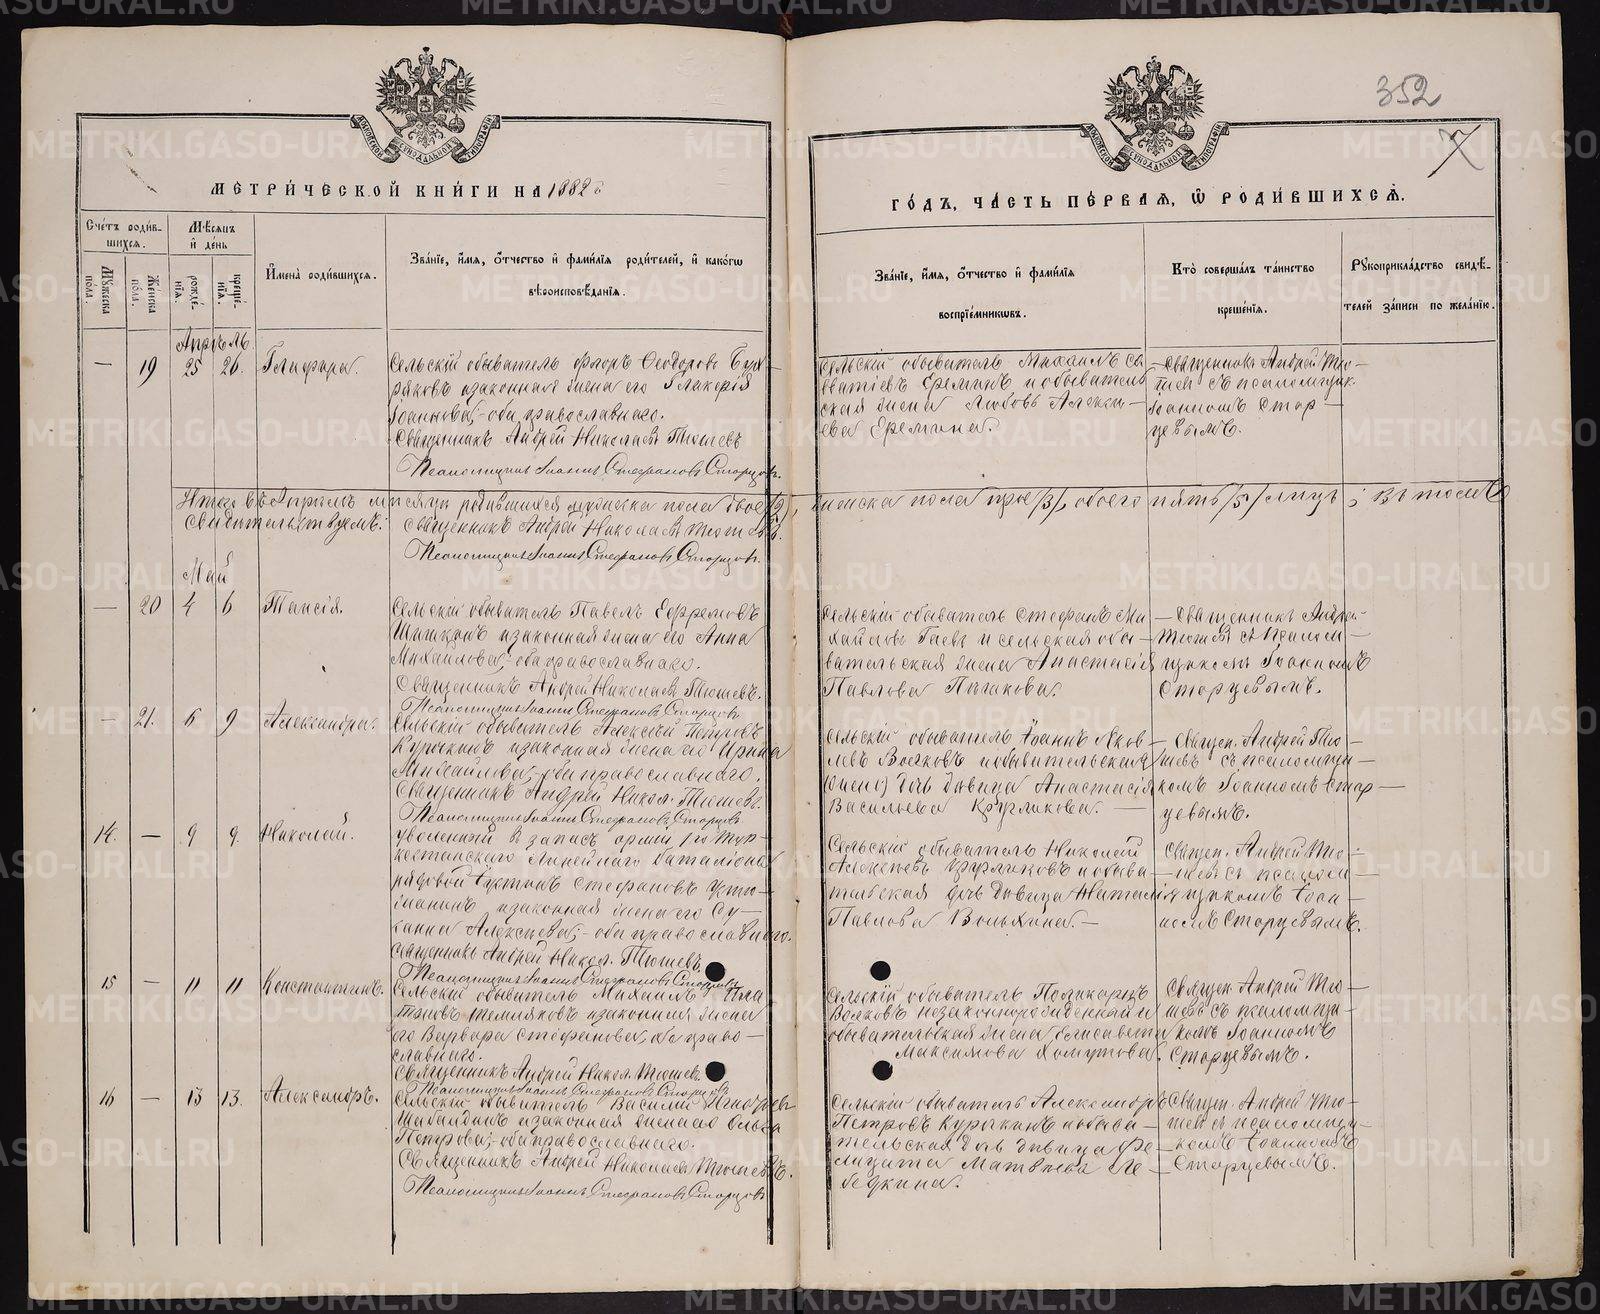 352
7
МОСКОВСКОЙ СѴНОДАЛЬНОЙ ТИПОГРАФІИ
МЕТРИЧЕСКОЙ КНИГИ НА 1882й
ГОДЪ, ЧАСТЬ ПЕРВАЯ, Ѿ РОДИВШИХСЯ.
Счетъ родившихся.
Мѣсяцъ и день
Имена родившихся.
Званіе, имя, отчество и фамилія родителей, и какогѡ вѣроисповѣданія.
Званіе, имя, отчество и фамилія воспріемникѡвъ.
Кто совершалъ таинство крещенія.
Рукоприкладство свидѣтелей записи по желанію.
Мужеска пола.
Женска пола.
рожденія.
крещенія.
Апрѣль
— 19 25 26. Глафира.
Сельскій обыватель Флоръ Ѳеодоровъ
и законная жена его Гликерія
Іоаннова, оба православнаго.
Священникъ Андрей Николаевъ Тюшевъ
Псаломщикъ Іоаннъ Стефановъ Старцовъ.
Сельскій обыватель Михаилъ Са-
ватіевъ Ереминъ и обыватель-
ская жена Любовь Алексѣ-
ева Еремина.
Священникъ Андрей Тю-
шевъ съ псаломщик.
Іоанномъ Стар-
цевымъ.
Итого въ Апрѣлѣ мѣсяцѣ родившихся мужеска пола двое /2/, женска пола трое /3/, обоего пять /5/ лицъ; Въ томъ
свидѣтельствуемъ:
Священникъ Андрей Николаевъ Тюшевъ.
Псаломщикъ Іоаннъ Стефановъ Старцовъ.
Май
— 20 4 6 Таисія.
Сельскій обыватель Павелъ Ефремовъ
и законная жена его Анна
Михаилова, оба православнаго.
Священникъ Андрей Николаевъ Тюшевъ.
Псаломщикъ Іоаннъ Стефановъ Старцовъ
Сельскій обыватель Стефанъ Ми-
хайловъ Гаевъ и сельская обы-
вательская жена Анастасія
Павлова
Священникъ Андрей
Тюшевъ съ псалом-
щикомъ Іоанномъ
Старцевымъ.
— 21. 6 9 Александра.
Сельскій обыватель Алексѣй Петровъ
Курочкинъ и законная жена его Ирина
Михайлова, оба православнаго.
Священникъ Андрей Никол. Тюшевъ.
Псаломщикъ Іоаннъ Стефановъ Старцовъ.
Сельскій обыватель Іоаннъ Яков-
левъ Волковъ и обывательская
дочь дѣвица Анастасія
Васильева Кругликова.
Священ. Андрей Тю-
шевъ съ псаломщи-
комъ Іоанномъ Стар-
цевымъ.
14. — 9 9. Николай.
Уволенный въ запасъ арміи 1го Тур-
кестанскаго Линейнаго баталіона
рядовой Іустинъ Стефановъ Устю-
жанинъ и законная жена его Су-
санна Алексѣева, оба православнаго.
Священникъ Андрей Никол. Тюшевъ
Псаломщикъ Іоаннъ Стефановъ Старцовъ
Сельскій обыватель Николай
Алексѣевъ Кругликовъ и обыва-
тельская дочь дѣвица Наталія
Павлова
Священ. Андрей Тю-
шевъ съ псалом-
щикомъ Іоан-
номъ Старцевымъ.
15 — 11 11 Константинъ.
Сельскій обыватель Михаилъ
и законная жена
его Варвара Стефанова, оба право-
славнаго.
Священникъ Андрей Никол. Тюшевъ
Псаломщикъ Іоаннъ Стефановъ Старцовъ
Сельскій обыватель Поликарпъ
Волковъ незаконнорожденный и
обывательская жена Елисавета
Максимова Хомутова.
Священ. Андрей Тю-
шевъ съ псаломщи-
комъ Іоанномъ
Старцевымъ.
16 — 13 13. Александръ.
Сельскій обыватель Василій
и законная жена его Ольга
Петрова, оба православнаго.
Священникъ Андрей Николаевъ Тюшевъ.
Псаломщикъ Іоаннъ Стефановъ Старцовъ
Сельскій обыватель Александръ
Петровъ Курочкинъ и обыва-
тельская дочь дѣвица Фе-
лицата Матвѣева Ле-
бедкина.
Священ. Андрей Тю-
шевъ съ псаломщи-
комъ Іоанномъ
Старцевымъ.
METRIKI.GASO-URAL.RU